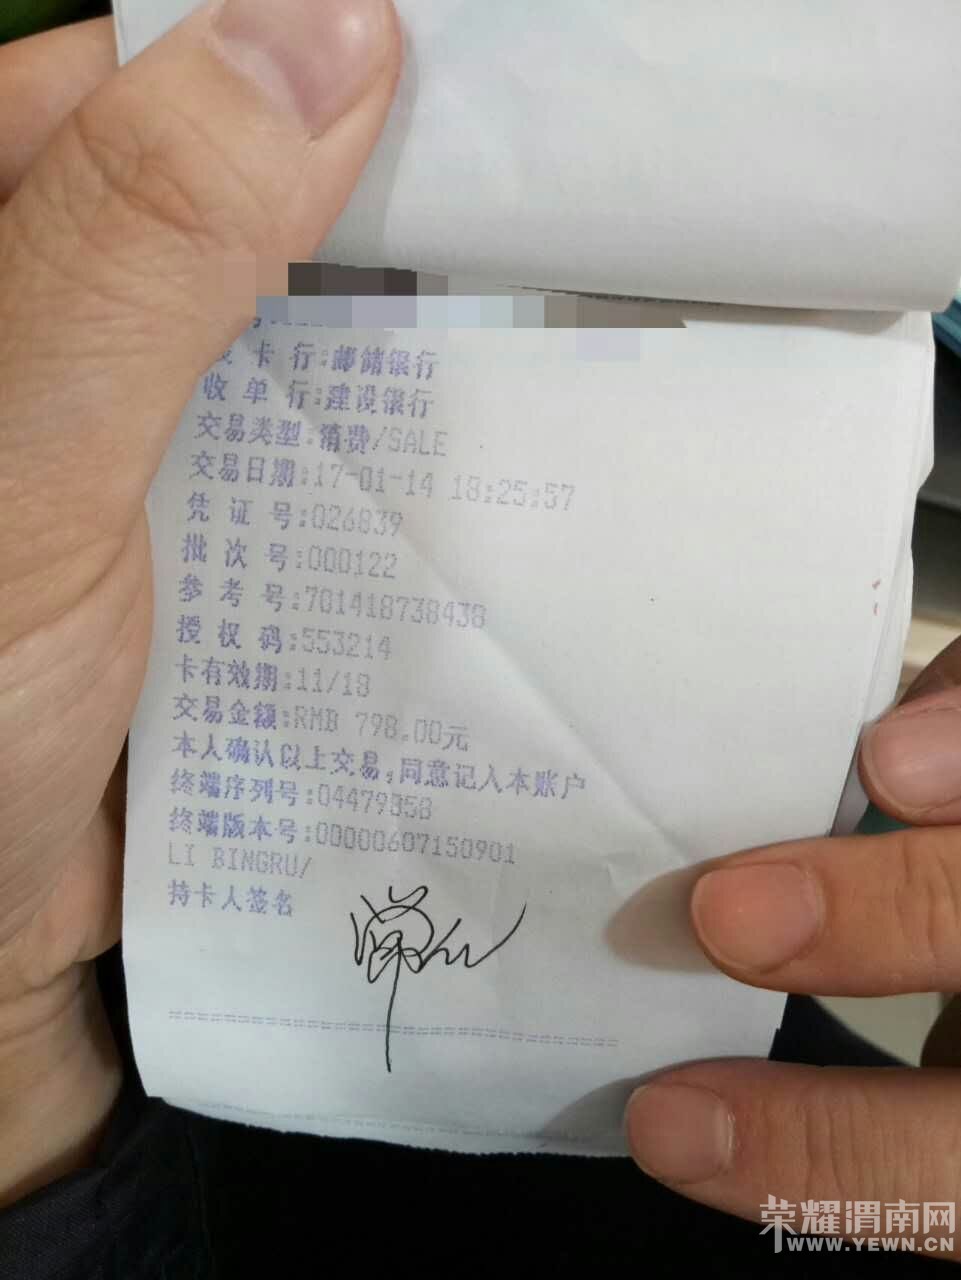 卡 行:邮储银行
收 单 行:建设银行
交易类型:消费/SALE
交易日期:17-01-14 18:25:57
凭 证 号:026839
批 次 号:000122
参 考 号:701418738438
授 权 码:553214
卡有效期:11/18
交易金额:RMB 798.00元
本人确认以上交易,同意记入本账户
终端序列号:04479858
终端版本号:00000607150901
LI BINGRU/
持卡人签名
荣耀渭南网
WWW.YEWN.CN